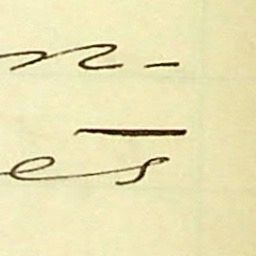 n-
es